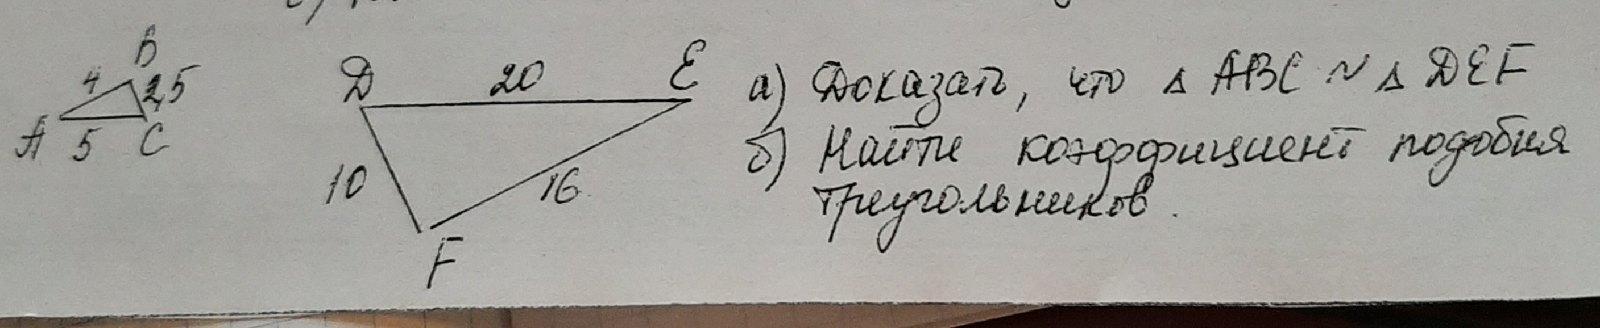 B
4
2,5
A
5
C
D
20
E
10
16
F
а) Доказать, что △ ABC ~ △ DEF
б) Найти коэффициент подобия
треугольников.